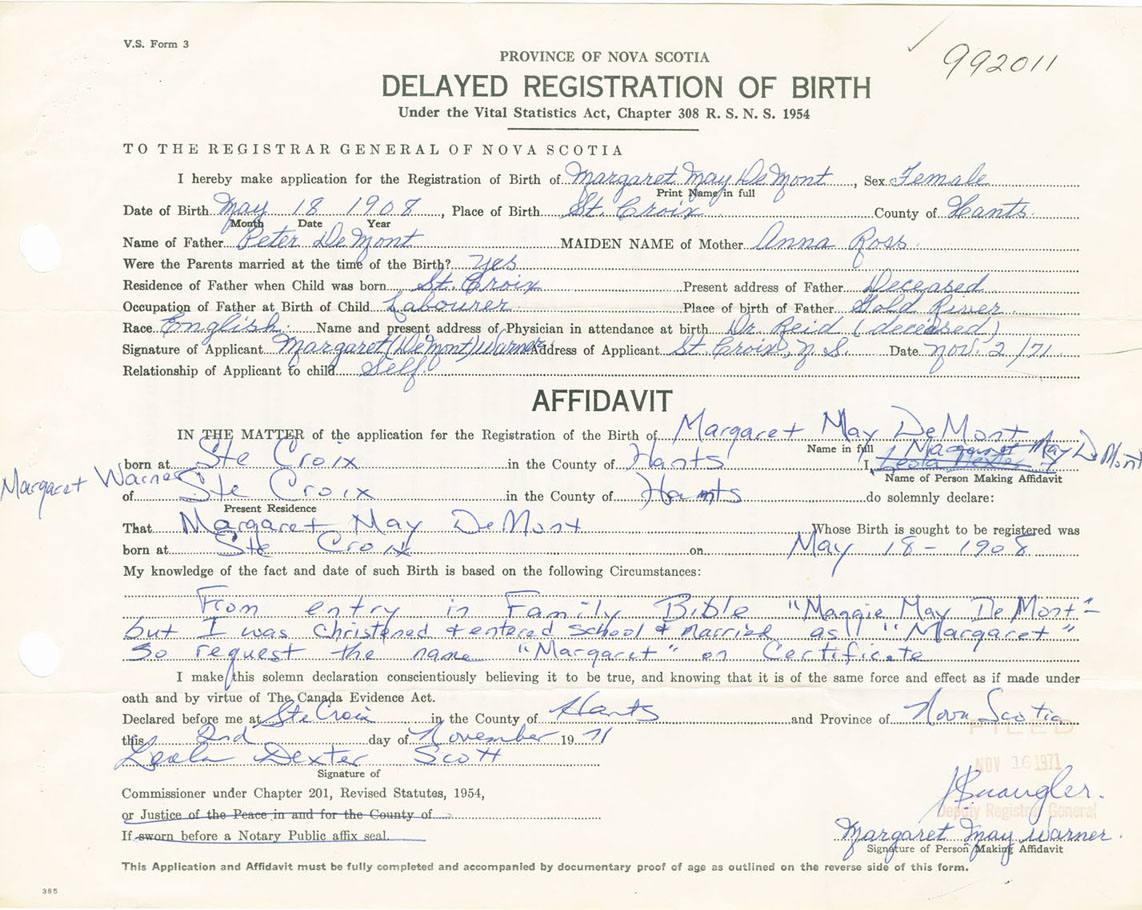 V.S. Form 3
992011
PROVINCE OF NOVA SCOTIA
DELAYED REGISTRATION OF BIRTH
Under the Vital Statistics Act, Chapter 308 R. S. N. S. 1954
TO THE REGISTRAR GENERAL OF NOVA SCOTIA
I hereby make application for the Registration of Birth of Margaret May DeMont, Sex Female
Print Name in full
Date of Birth May 18 1908, Place of Birth St. Croix County of Hants.
Month Date Year
Name of Father Peter DeMont MAIDEN NAME of Mother Anna Ross.
Were the Parents married at the time of the Birth? Yes
Residence of Father when Child was born St. Croix Present address of Father Deceased
Occupation of Father at Birth of Child Labourer Place of birth of Father Gold River
Race English. Name and present address of Physician in attendance at birth Dr. Reid (deceased)
Signature of Applicant Margaret (DeMont) Warner Address of Applicant St. Croix, N.S. Date Nov. 2/71
Relationship of Applicant to child Self.
AFFIDAVIT
IN THE MATTER of the application for the Registration of the Birth of Margaret May DeMont
Name in full
born at Ste Croix in the County of Hants I, Leola Dexter Margaret May DeMont
Name of Person Making Affidavit
Margaret Warner
of Ste Croix in the County of Hants do solemnly declare:
Present Residence
That Margaret May DeMont Whose Birth is sought to be registered was
born at Ste Croix on May 18 - 1908
My knowledge of the fact and date of such Birth is based on the following Circumstances:
From entry in Family Bible "Maggie May DeMont"-
but I was christened & entered school & married as "Margaret"
So request the name "Margaret" on Certificate
I make this solemn declaration conscientiously believing it to be true, and knowing that it is of the same force and effect as if made under
oath and by virtue of The Canada Evidence Act.
Declared before me at Ste Croix in the County of Hants and Province of Nova Scotia
this 2nd day of November 1971
FILED
Leola Dexter Scott
NOV 16 1971
Signature of
Commissioner under Chapter 201, Revised Statutes, 1954,
or Justice of the Peace in and for the County of
Deputy Registrar General
If sworn before a Notary Public affix seal.
Margaret May Warner.
Signature of Person Making Affidavit
This Application and Affidavit must be fully completed and accompanied by documentary proof of age as outlined on the reverse side of this form.
385